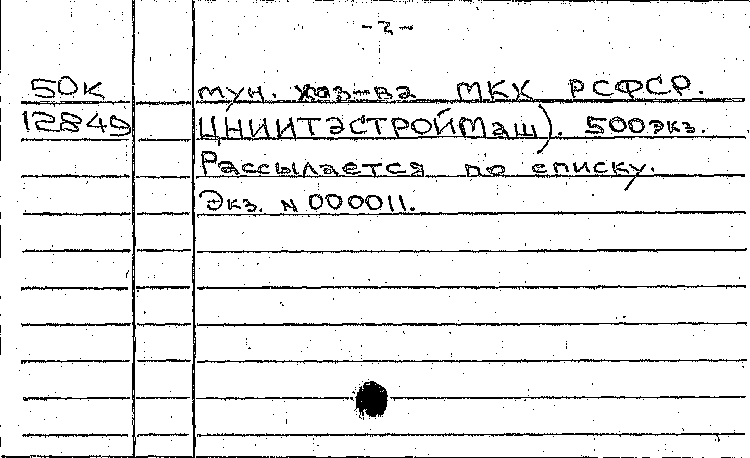 -2-
50к мун. хоз-ва МКХ РСФСР.
12849 ЦНИИТЭСТРОЙМаш). 500экз.
Рассылается по списку.
Экз. N 000011.